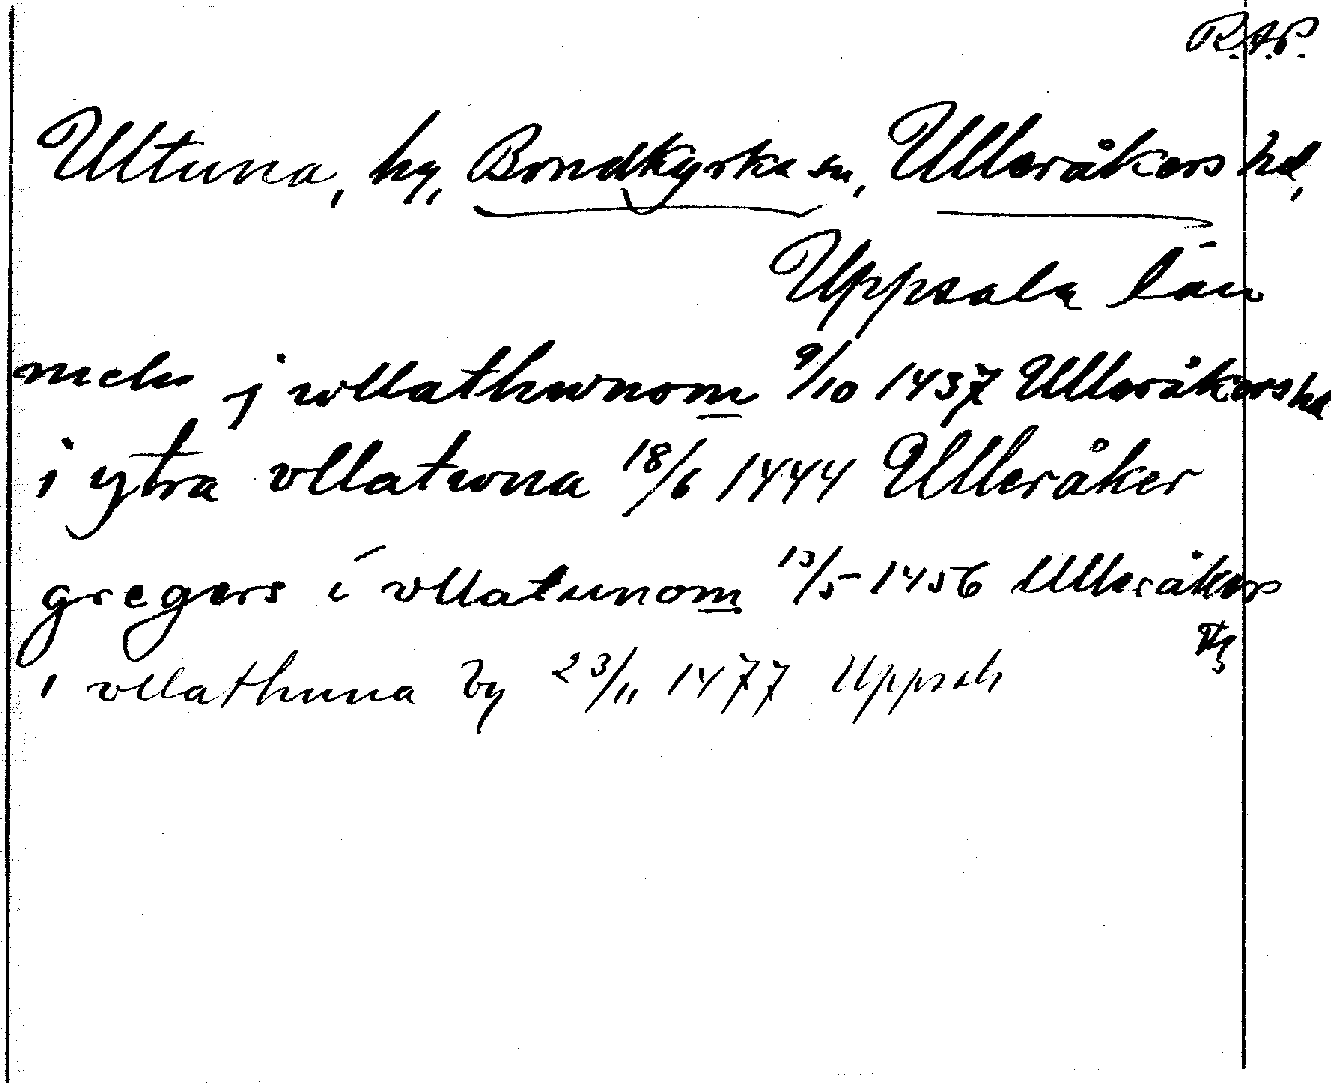 R.A.P.
Ultuna, by, Bondkyrka sn, Ulleråkers hd,
Uppsala län
j wllathwnom 9/10 1437 Ulleråkers hd
i ytra vllatwna 18/6 1444 Ulleråker
gregers i vllatunom 13/5 1456 Ulleråkers
i vllathuna by 23/11 1477 Uppsala